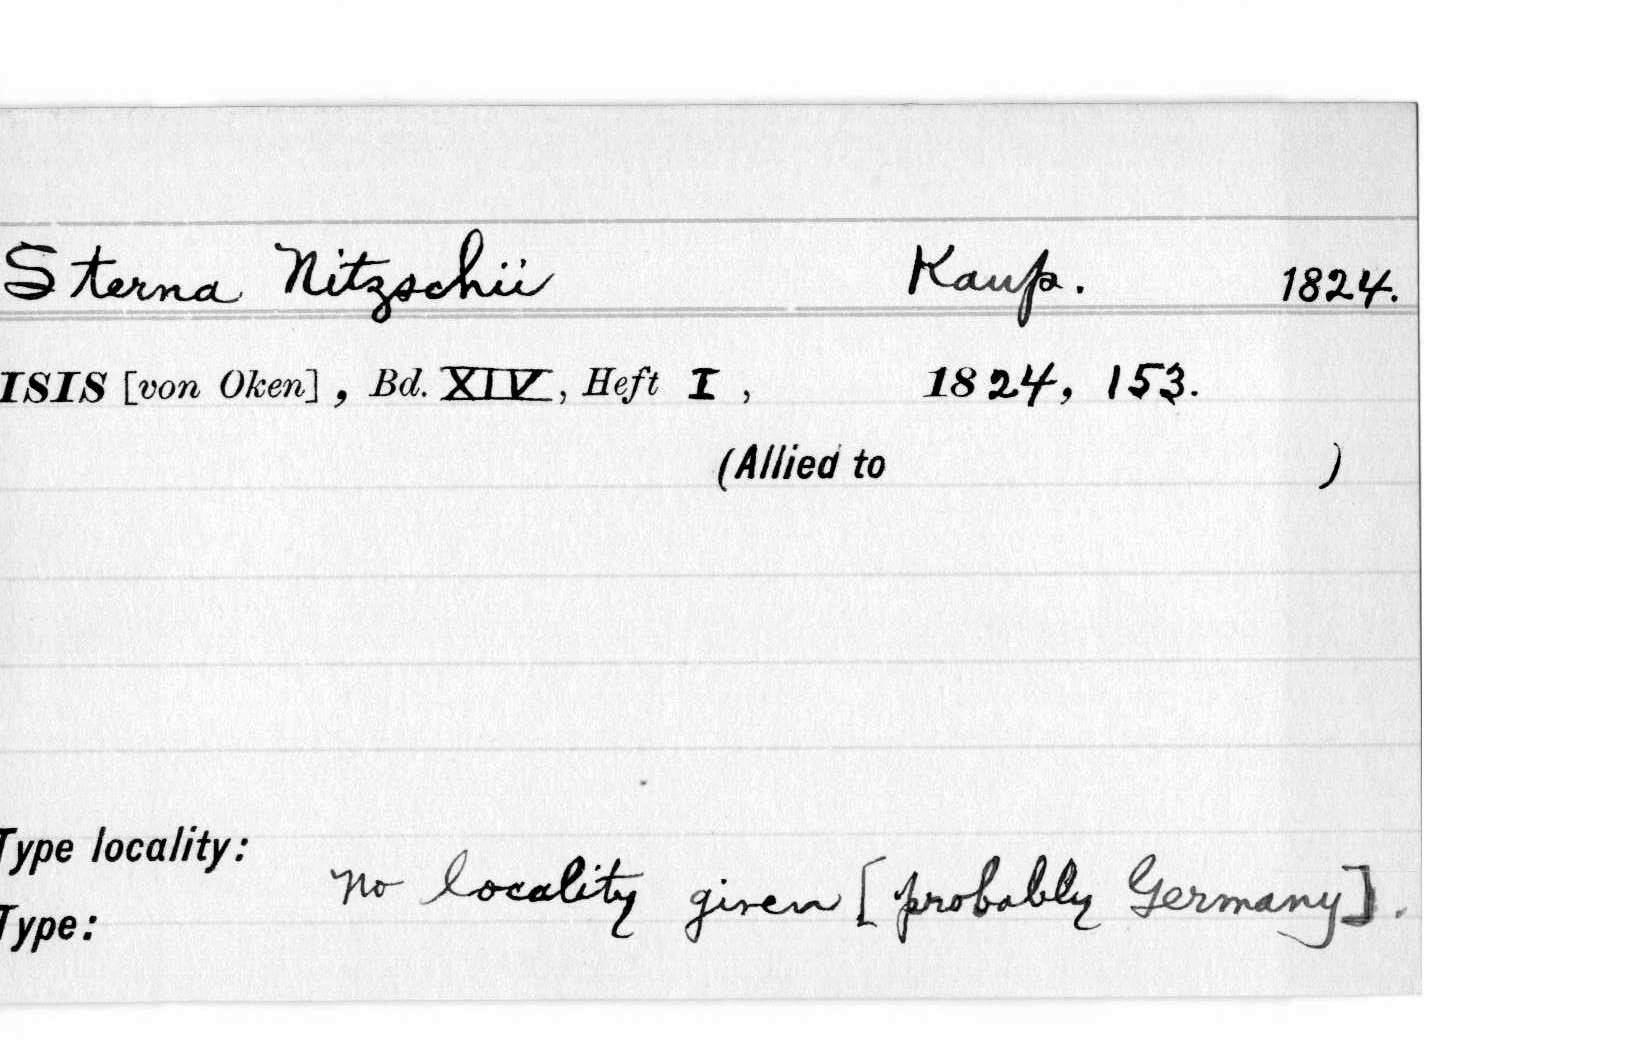 Sterna Nitzschii Kaup. 1824.
ISIS [von Oken], Bd. XIV, Heft I, 1824, 153.
(Allied to )
Type locality:
No locality given [probably Germany].
Type: